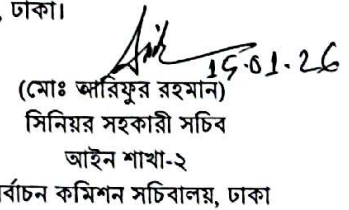 , ঢাকা।
15.01.26
(মোঃ আরিফুর রহমান)
সিনিয়র সহকারী সচিব
আইন শাখা-২
র্বাচন কমিশন সচিবালয়, ঢাকা